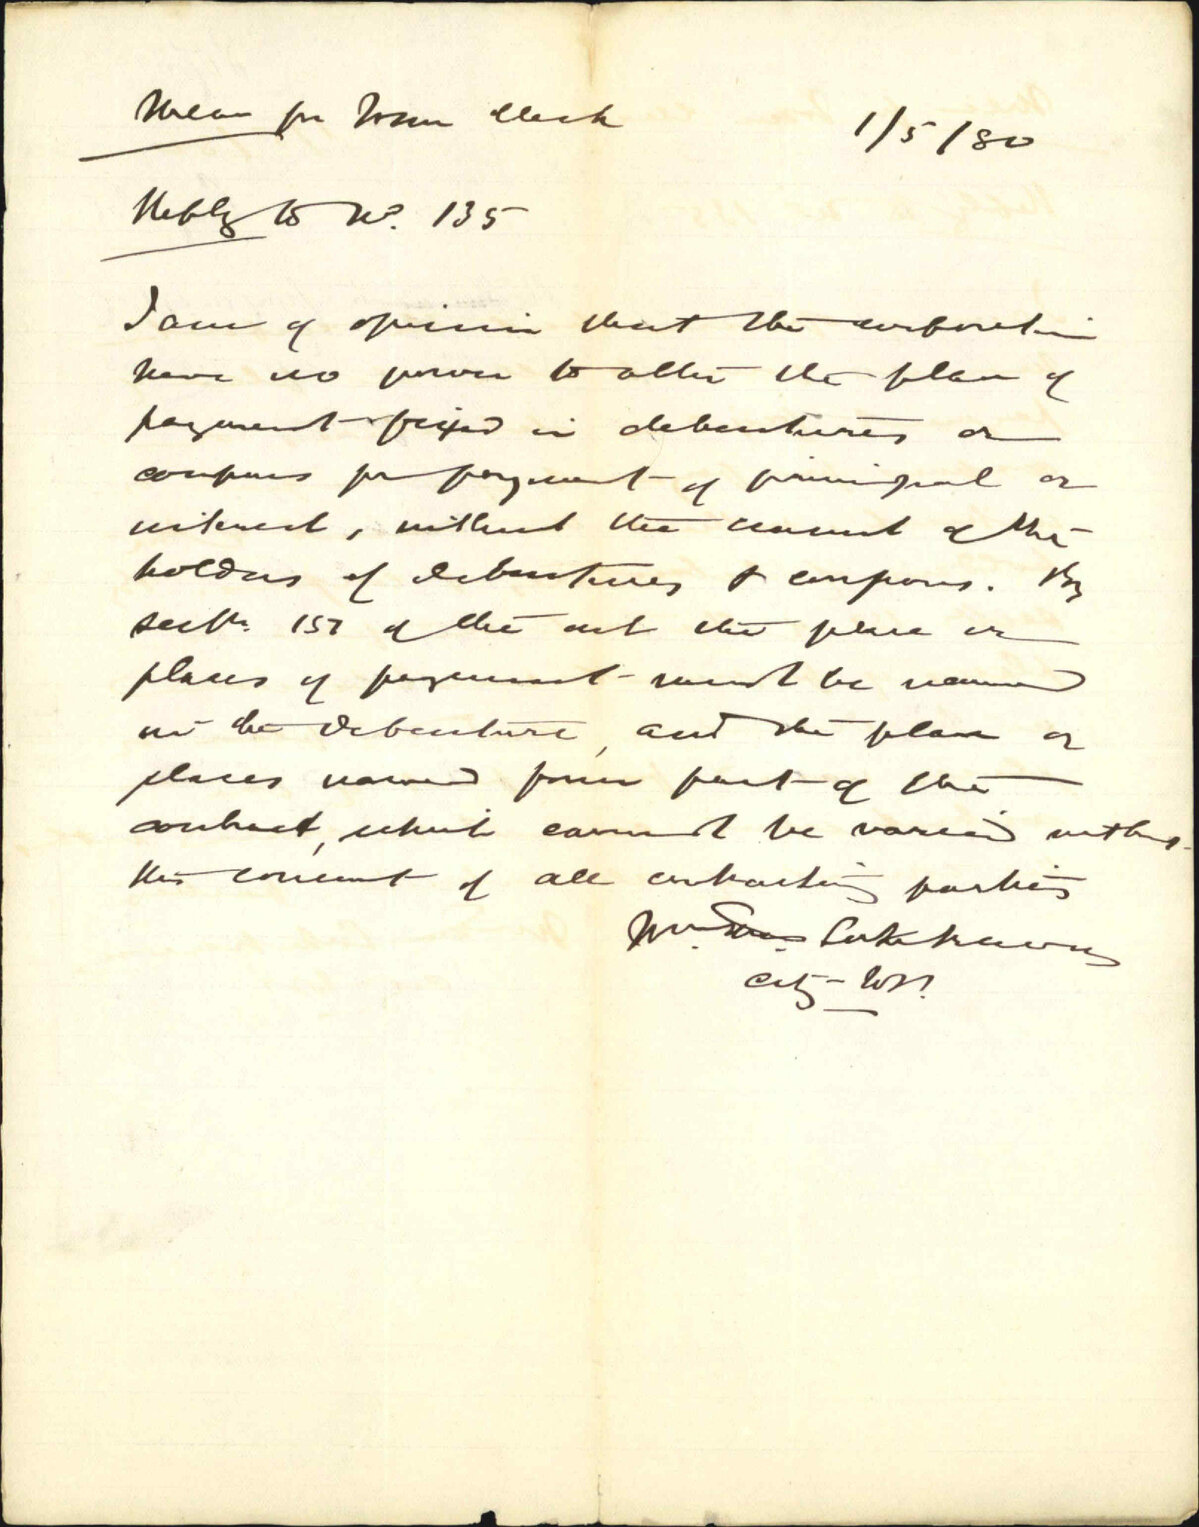 Memo for Town Clerk
1/5/80
Reply to No. 135
I am of opinion that the corporation
have no power to alter the place of
payment fixed in debentures or
coupons for payment of principal or
interest, without the consent of the
holders of debentures & coupons. By
sectn. 157 of the act the place or
places of payment must be named
in the debenture, and the place or
places named form part of the
contract, which cannot be varied without
the consent of all contracting parties
Wm.
City Solr.